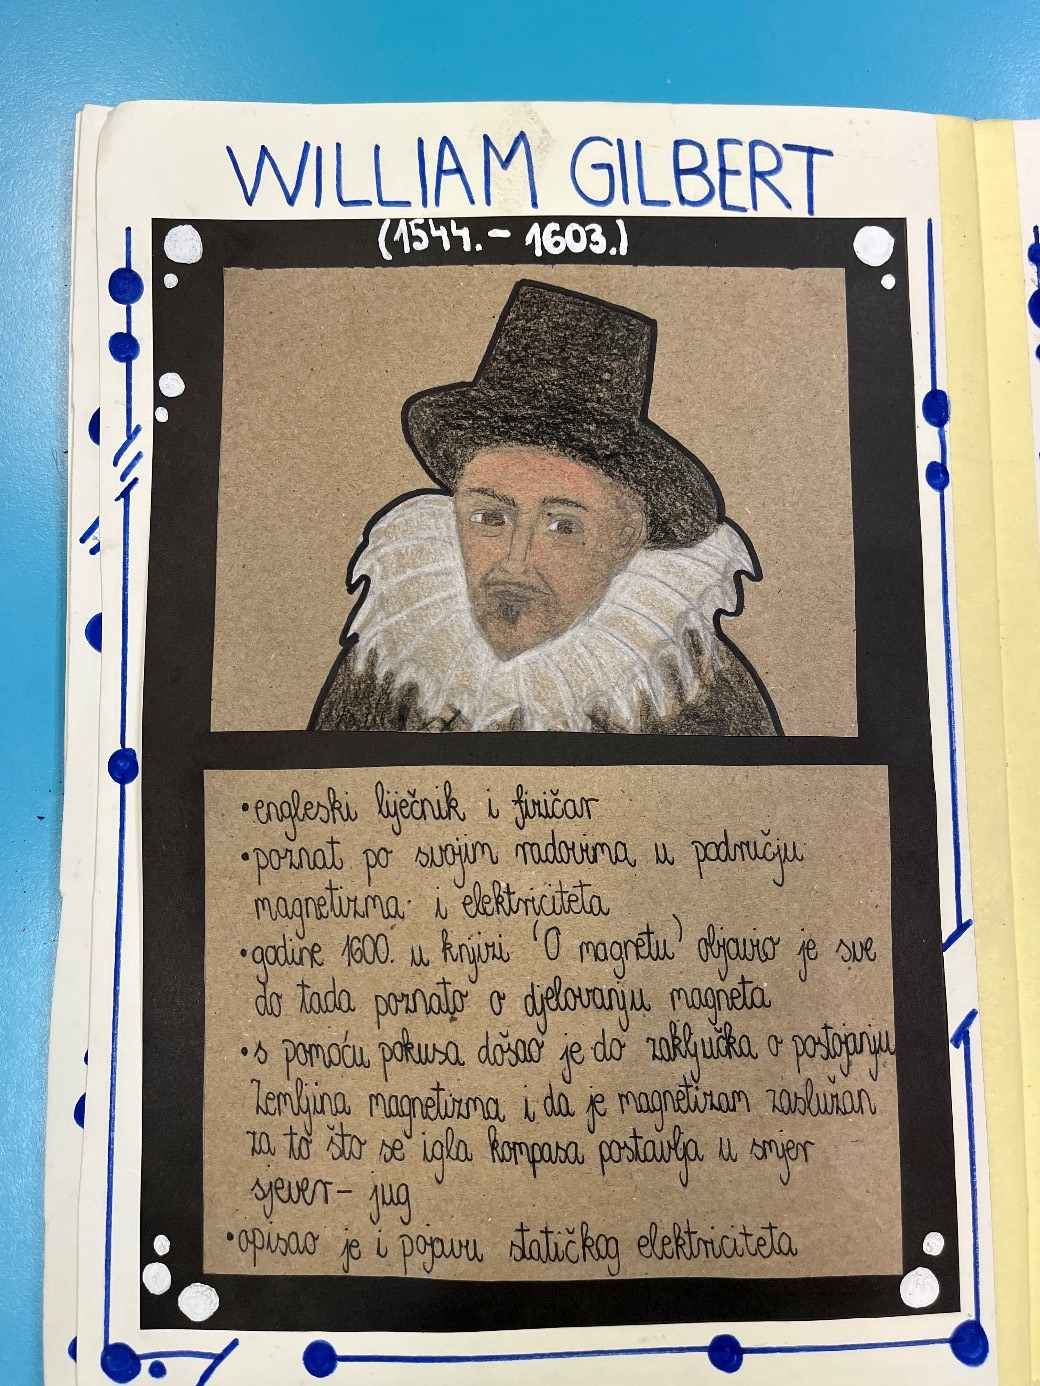 WILLIAM GILBERT
(1544. - 1603.)
•engleski liječnik i fizičar
•poznat po svojim radovima u području
magnetizma i elektriciteta
•godine 1600. u knjizi 'O magnetu' objavio je sve
do tada poznato o djelovanju magneta
•s pomoću pokusa došao je do zaključka o postojanju
Zemljina magnetizma i da je magnetizam zaslužan
za to što se igla kompasa postavlja u smjer
sjever- jug
•opisao je i pojavu statičkog elektriciteta